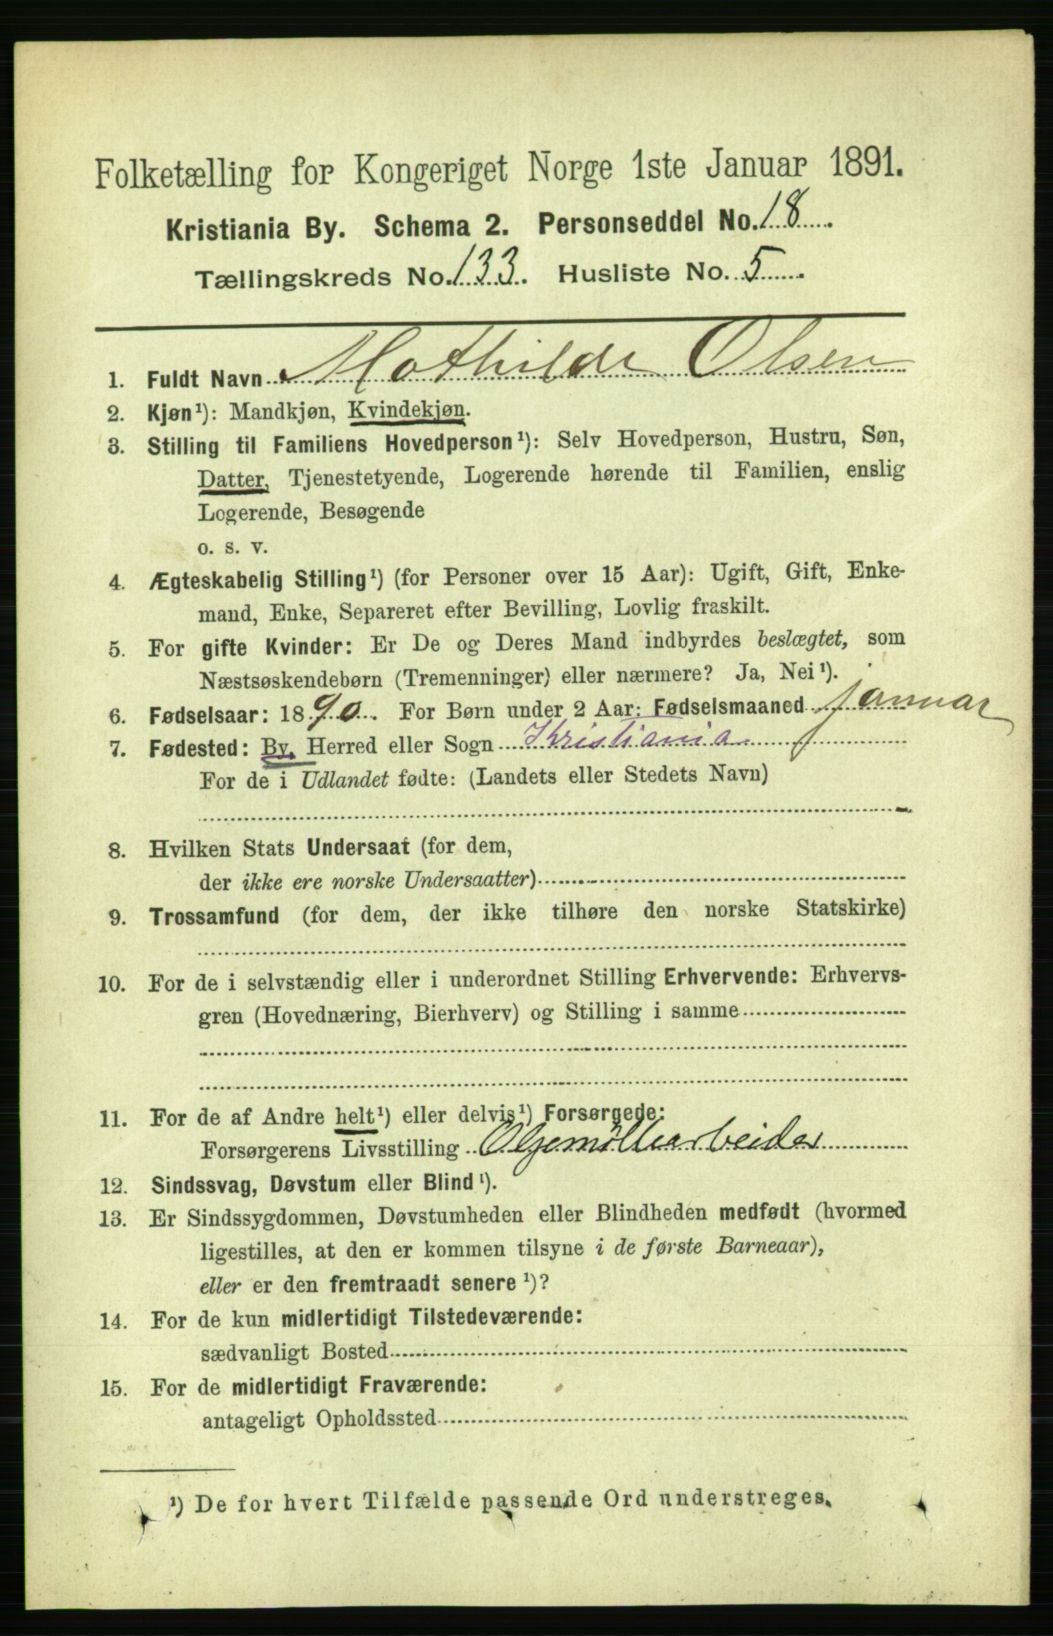 Folketælling for Kongeriget Norge 1ste Januar 1891.
Kristiania By. Schema 2. Personseddel No. 18.
Tællingskreds No. 133. Husliste No. 5.
1. Fuldt Navn Mathilde Olsen
2. Kjøn¹): Mandkjøn, Kvindekjøn.
3. Stilling til Familiens Hovedperson¹): Selv Hovedperson, Hustru, Søn,
Datter, Tjenestetyende, Logerende hørende til Familien, enslig
Logerende, Besøgende
o. s. v.
4. Ægteskabelig Stilling¹) (for Personer over 15 Aar): Ugift, Gift, Enke-
mand, Enke, Separeret efter Bevilling, Lovlig fraskilt.
5. For gifte Kvinder: Er De og Deres Mand indbyrdes beslægtet, som
Næstsøskendebørn (Tremenninger) eller nærmere? Ja, Nei¹).
6. Fødselsaar: 1890. For Børn under 2 Aar: Fødselsmaaned januar
7. Fødested: By, Herred eller Sogn Kristiania
For de i Udlandet fødte: (Landets eller Stedets Navn)
8. Hvilken Stats Undersaat (for dem,
der ikke ere norske Undersaatter)
9. Trossamfund (for dem, der ikke tilhøre den norske Statskirke)
10. For de i selvstændig eller i underordnet Stilling Erhvervende: Erhvervs-
gren (Hovednæring, Bierhverv) og Stilling i samme
11. For de af Andre helt¹) eller delvis¹) Forsørgede:
Forsørgerens Livsstilling Oljemöllearbeider
12. Sindssvag, Døvstum eller Blind¹).
13. Er Sindssygdommen, Døvstumheden eller Blindheden medfødt (hvormed
ligestilles, at den er kommen tilsyne i de første Barneaar),
eller er den fremtraadt senere¹)?
14. For de kun midlertidigt Tilstedeværende:
sædvanligt Bosted
15. For de midlertidigt Fraværende:
antageligt Opholdssted
¹) De for hvert Tilfælde passende Ord understreges.